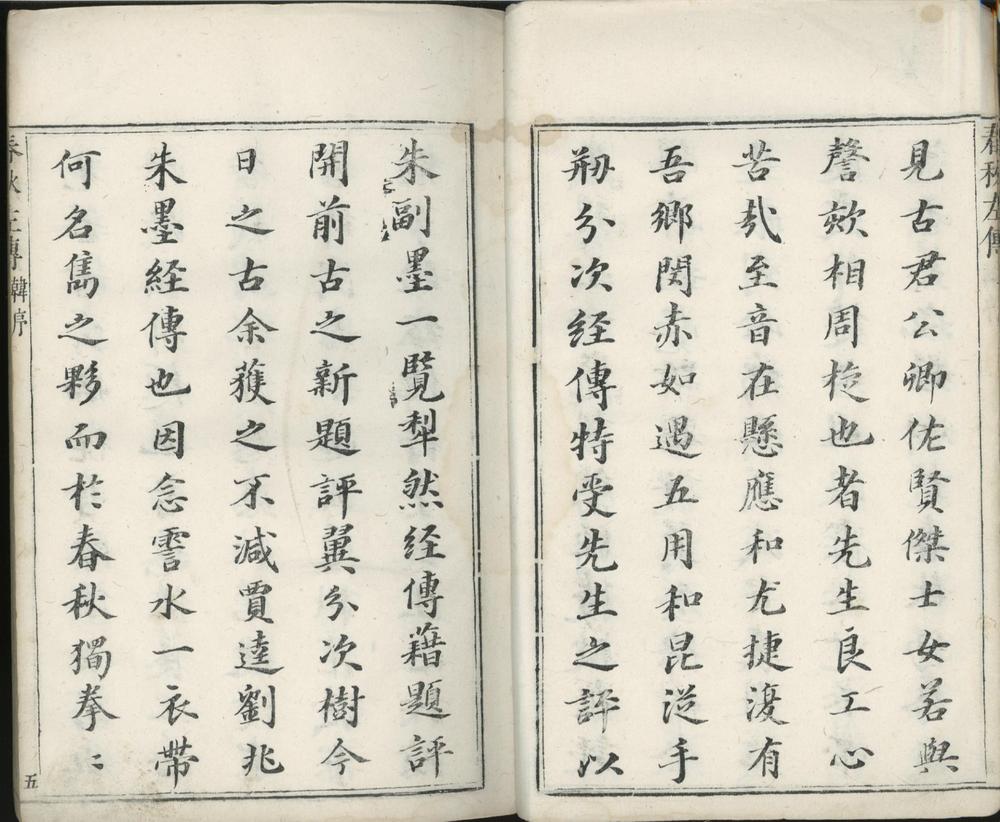 春秋左傳
見古君公卿佐賢傑士女若與
謦欬相周旋也者先生良工心
苦㢤至音在懸應和尤捷渡有
吾鄉閔赤如遇五用和昆從手
剏分次経傳特受先生之評以
朱副墨一覽犁然経傳藉題評
開前古之新題評翼分次樹今
日之古余獲之不減賈逵劉兆
朱墨経傳也因念霅水一衣帶
何名雋之夥而扵春秋獨拳〻
春秋左傳 韓序 五